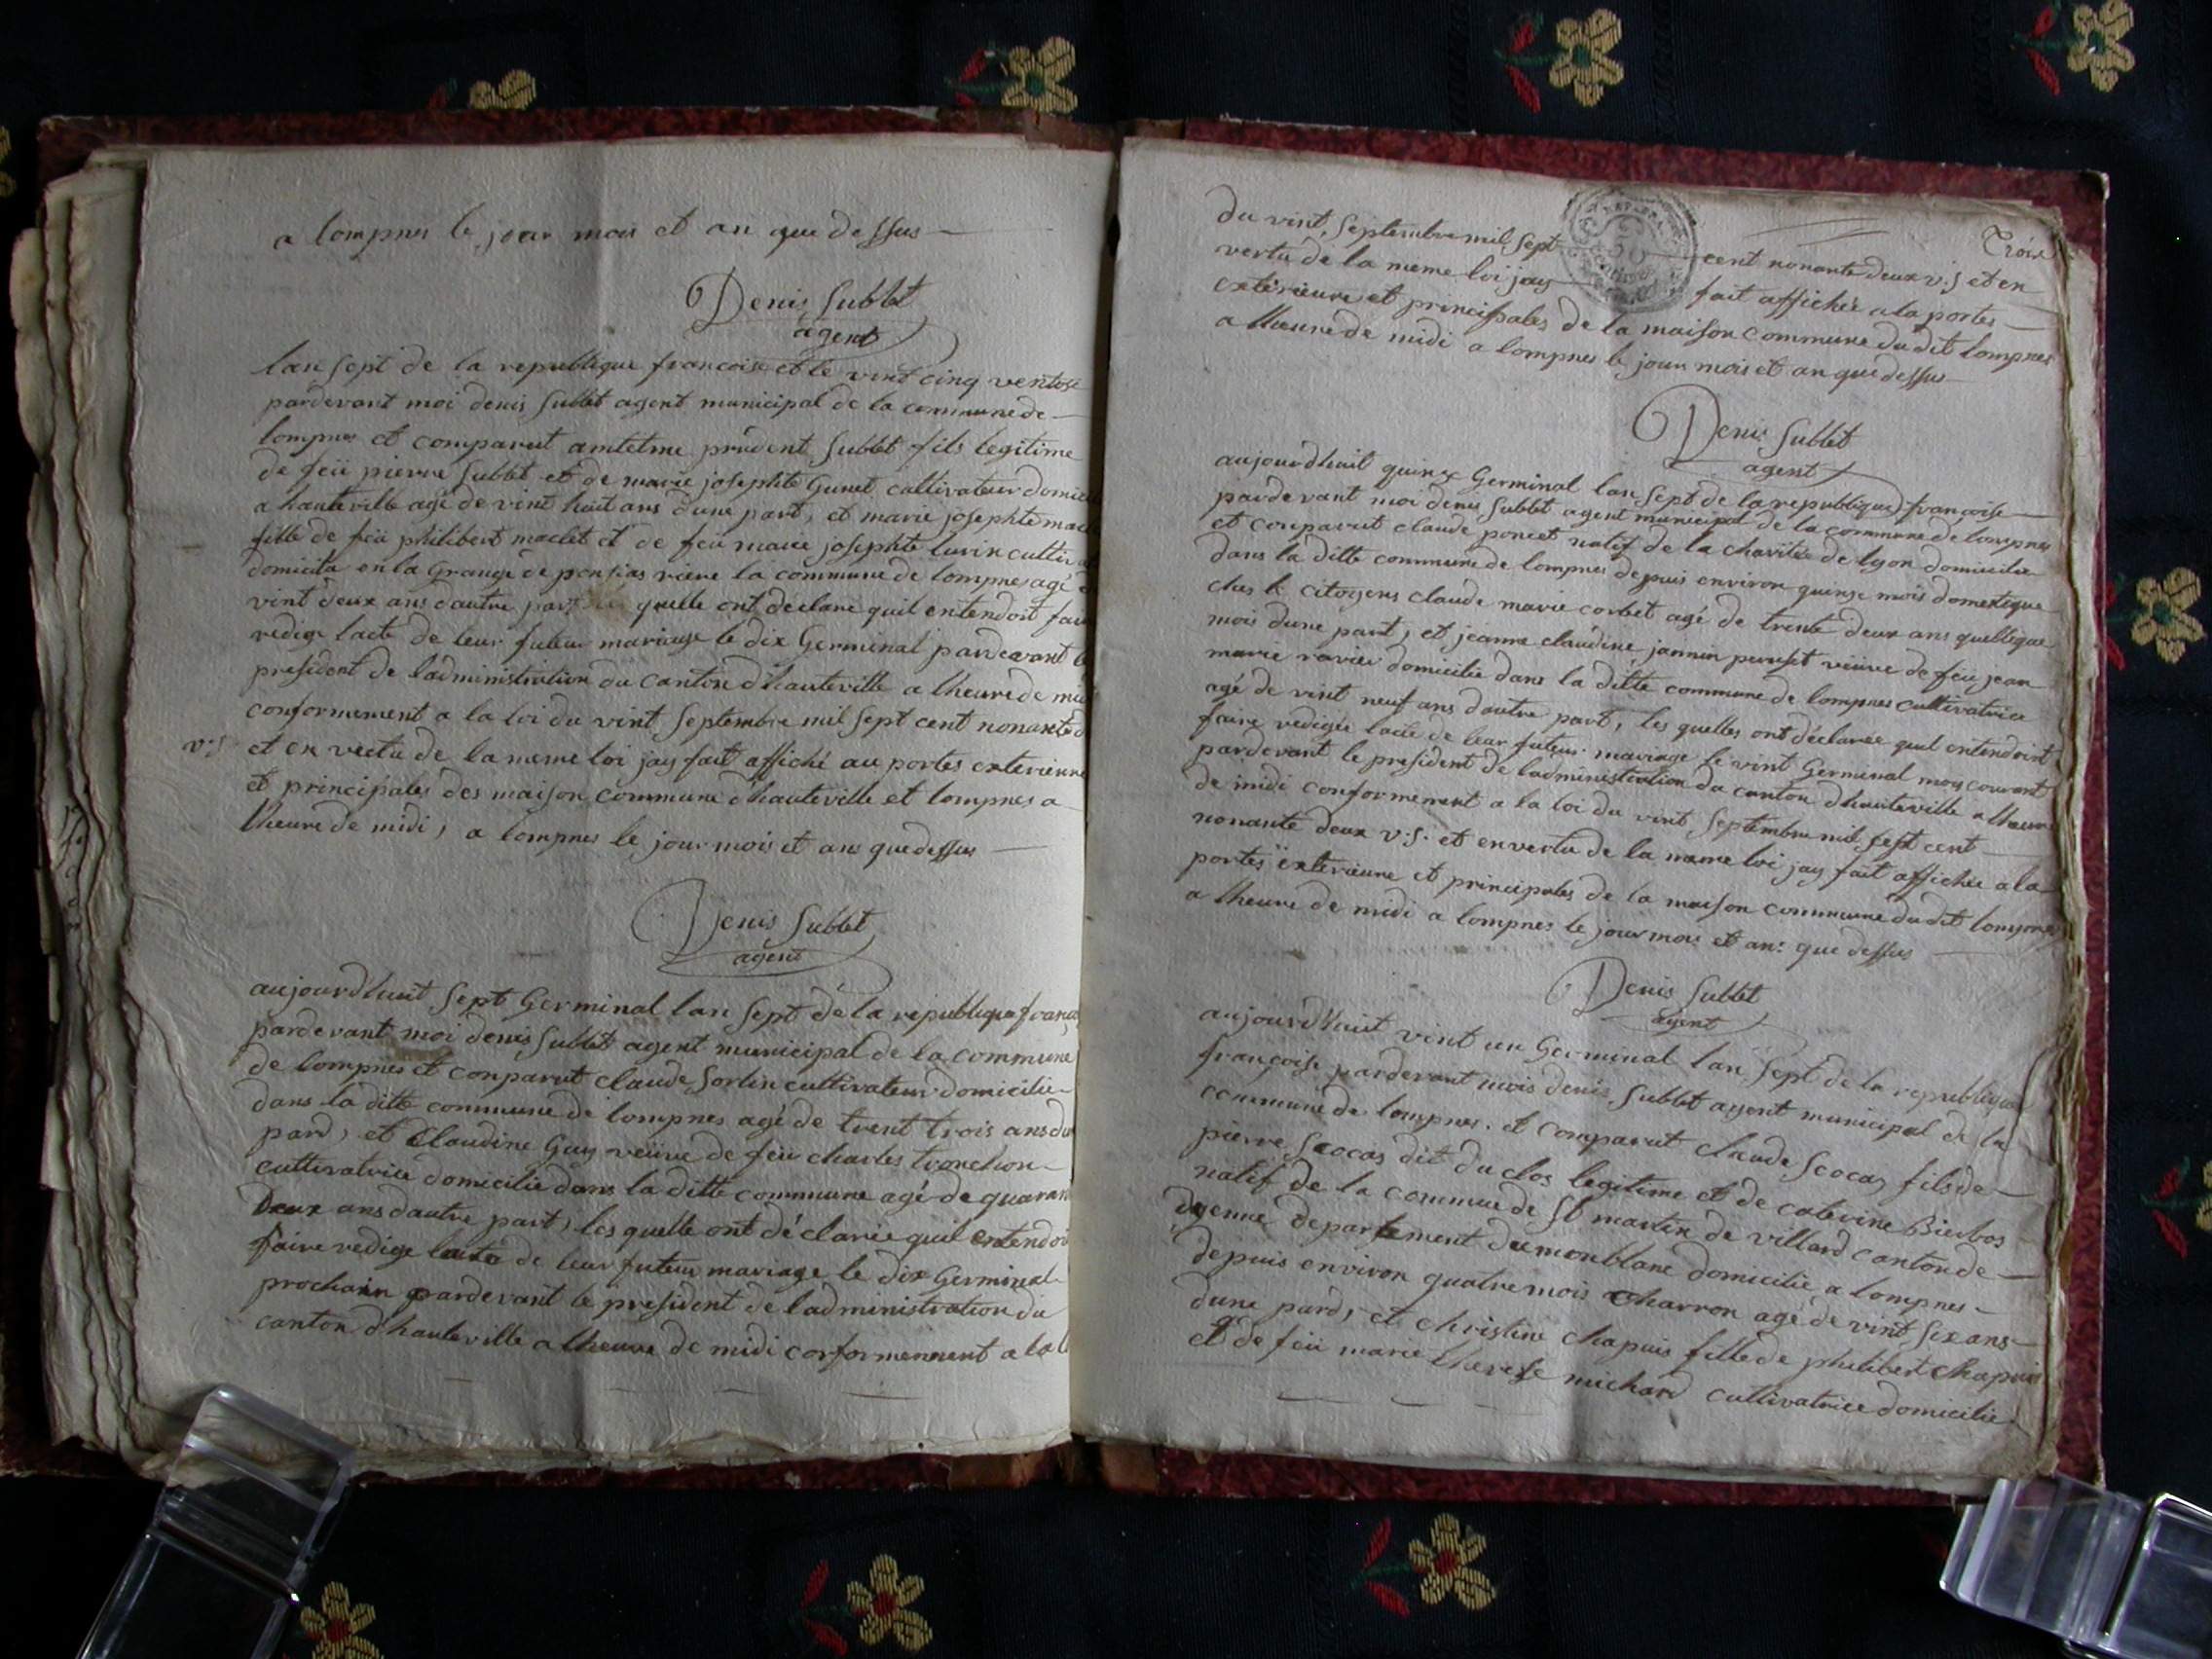 a lompnes le jour mois et an que dessus
Denis Sublet
agent
lan sept de la republique francoise et le vint cinq ventose
pardevant moi denis Sublet agent municipal de la commune de
lompnes et comparut amtelme prudent Sublet fils legitime
de feü pierre Sublet et de marie josephte Gunet cultivateur domici
a hauteville agé de vint huit ans dune part, et marie josephte macle
fille de feü philibert maclet et de feü marie josephte lurin cultiv
domicilié en la Grange de ponsias riere la commune de lompnes agé
vint deux ans dautre part quelle ont declare quil entendoit fair
redige lacte de leur futeur mariage le dix Germinal pardevant le
president de ladministration du canton dhauteville a lheure de mi
conformement a la loi du vint Septembre mil Sept cent nonante d
v:s et en vertu de la meme loi jay fait affiché au portes exterieure
et principales des maison commune dhauteville et lompnes a
lheure de midi, a lompnes le jour mois et ans que dessus
Denis Sublet
agent
aujourdhuit Sept Germinal lan Sept de la republique franco
pardevant moi denis Sublet agent municipal de la commune
de lompnes et conparut claude Sorlin cultivateur domicilie
dans la ditte commune de lompnes agé de trent trois ans du
pard, et Claudine Guy veüive de feü charles tronchon
cultivatrice domicilié dans la ditte commune agé de quaran
Deux ans dautre part, les quelle ont déclarée quil entendoi
faire redige lacte de leur futeur mariage le dix Germinal
prochain pardevant le president de ladministration du
canton dhauteville a lheure de midi conformement a la l
Troix
du vint Septembre mil Sept cent nonante deux v.s et en
vertu de la meme loi jay fait affichée a la portes
exterieure et principales de la maison commune du dit lompnes
a lheure de midi a lompnes le jour mois et an que dessus
Denis Sublet
agent
aujourdhuit quinze Germinal lan Sept de la republique françoise
pardevant moi denis Sublet agent municipal de la commune de lompnes
et conparut claude poncet natif de la charitée de lyon domicilie
dans la ditte commune de lompnes depuis environ quinze mois domestique
ches le citoyens claude marie corbet agé de trente deux ans quelleque
mois dune part, et jeanne claudine jannin veüive de feü jean
marie ravier domicilie dans la ditte commune de lompnes cultivatrice
agé de vint neuf ans dautre part, les quelles ont déclarée quil entendoint
faire redigée lacte de leur futeur mariage le vint Germinal mois courant
pardevant le president de ladministration du canton dhauteville a lheure
de midi conformement a la loi du vint Septembre mil Sept cent
nonante deux v.s. et en vertu de la meme loi jay fait affichée a la
portes exterieure et principales de la maison commune du dit lompnes
a lheure de midi a lompnes le jour mois et ans que dessus
Denis Sublet
agent
aujourdhuit vint un Germinal lan Sept de la republique
françoise pardevant mois denis Sublet agent municipal de la
commune de lompnes. et comparut claude Scocas fils de
pierre Scocas dit du clos legitime et de caterine Bierbos
natif de la commue de St martin de villard canton de
dyenne departement du monblanc domicilie a lompnes
depuis environ quatre mois charron agé de vint Six ans
dune pard, et christine chapuis fille de philibert chapuis
et de feü marie therese michard cultivatrice domicilié